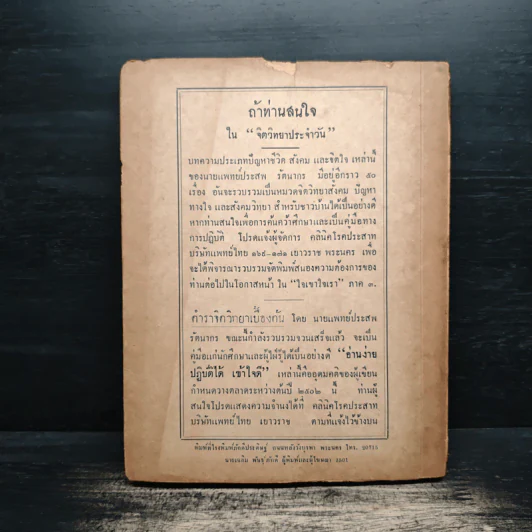 ถ้าท่านสนใจ
ใน “จิตวิทยาประจำวัน”
บทความประเภทปัญหาชีวิต สังคม และจิตใจ เหล่านี้
ของนายแพทย์ประสพ รัตนากร มีอยู่อีกราว ๕๐
เรื่อง อันจะรวบรวมเป็นหมวดจิตวิทยาสังคม ปัญหา
ทางใจ และสังคมวิทยา สำหรับชาวบ้านได้เป็นอย่างดี
หากท่านสนใจเพื่อการค้นคว้าศึกษาและเป็นคู่มือทาง
การปฏิบัติ โปรดแจ้งผู้จัดการ คลินิคโรคประสาท
บริษัทแพทย์ไทย ๑๖๙-๑๗๑ เยาวราช พระนคร เพื่อ
จะได้พิจารณารวบรวมจัดพิมพ์สนองความต้องการของ
ท่านต่อไปในโอกาสหน้า ใน “ใจเขาใจเรา” ภาค ๓.
ตำราจิตวิทยาเบื้องต้น โดย นายแพทย์ประสพ
รัตนากร ขณะนี้กำลังรวบรวมจวนเสร็จแล้ว จะเป็น
คู่มือแก่นักศึกษาและผู้ใฝ่รู้ได้เป็นอย่างดี “อ่านง่าย
ปฏิบัติได้ เข้าใจดี” เหล่านี้คืออุดมคติของผู้เขียน
กำหนดวางตลาดระหว่างต้นปี ๒๕๐๒ นี้ ท่านผู้
สนใจโปรดแสดงความจำนงได้ที่ คลินิคโรคประสาท
บริษัทแพทย์ไทย เยาวราช ตามที่แจ้งไว้ข้างบน
พิมพ์ที่โรงพิมพ์ภักดีประดิษฐ์ ถนนหลังวังบูรพา พระนคร โทร.
นายเฉลิม ภักดี ผู้พิมพ์และผู้โฆษณา 2501